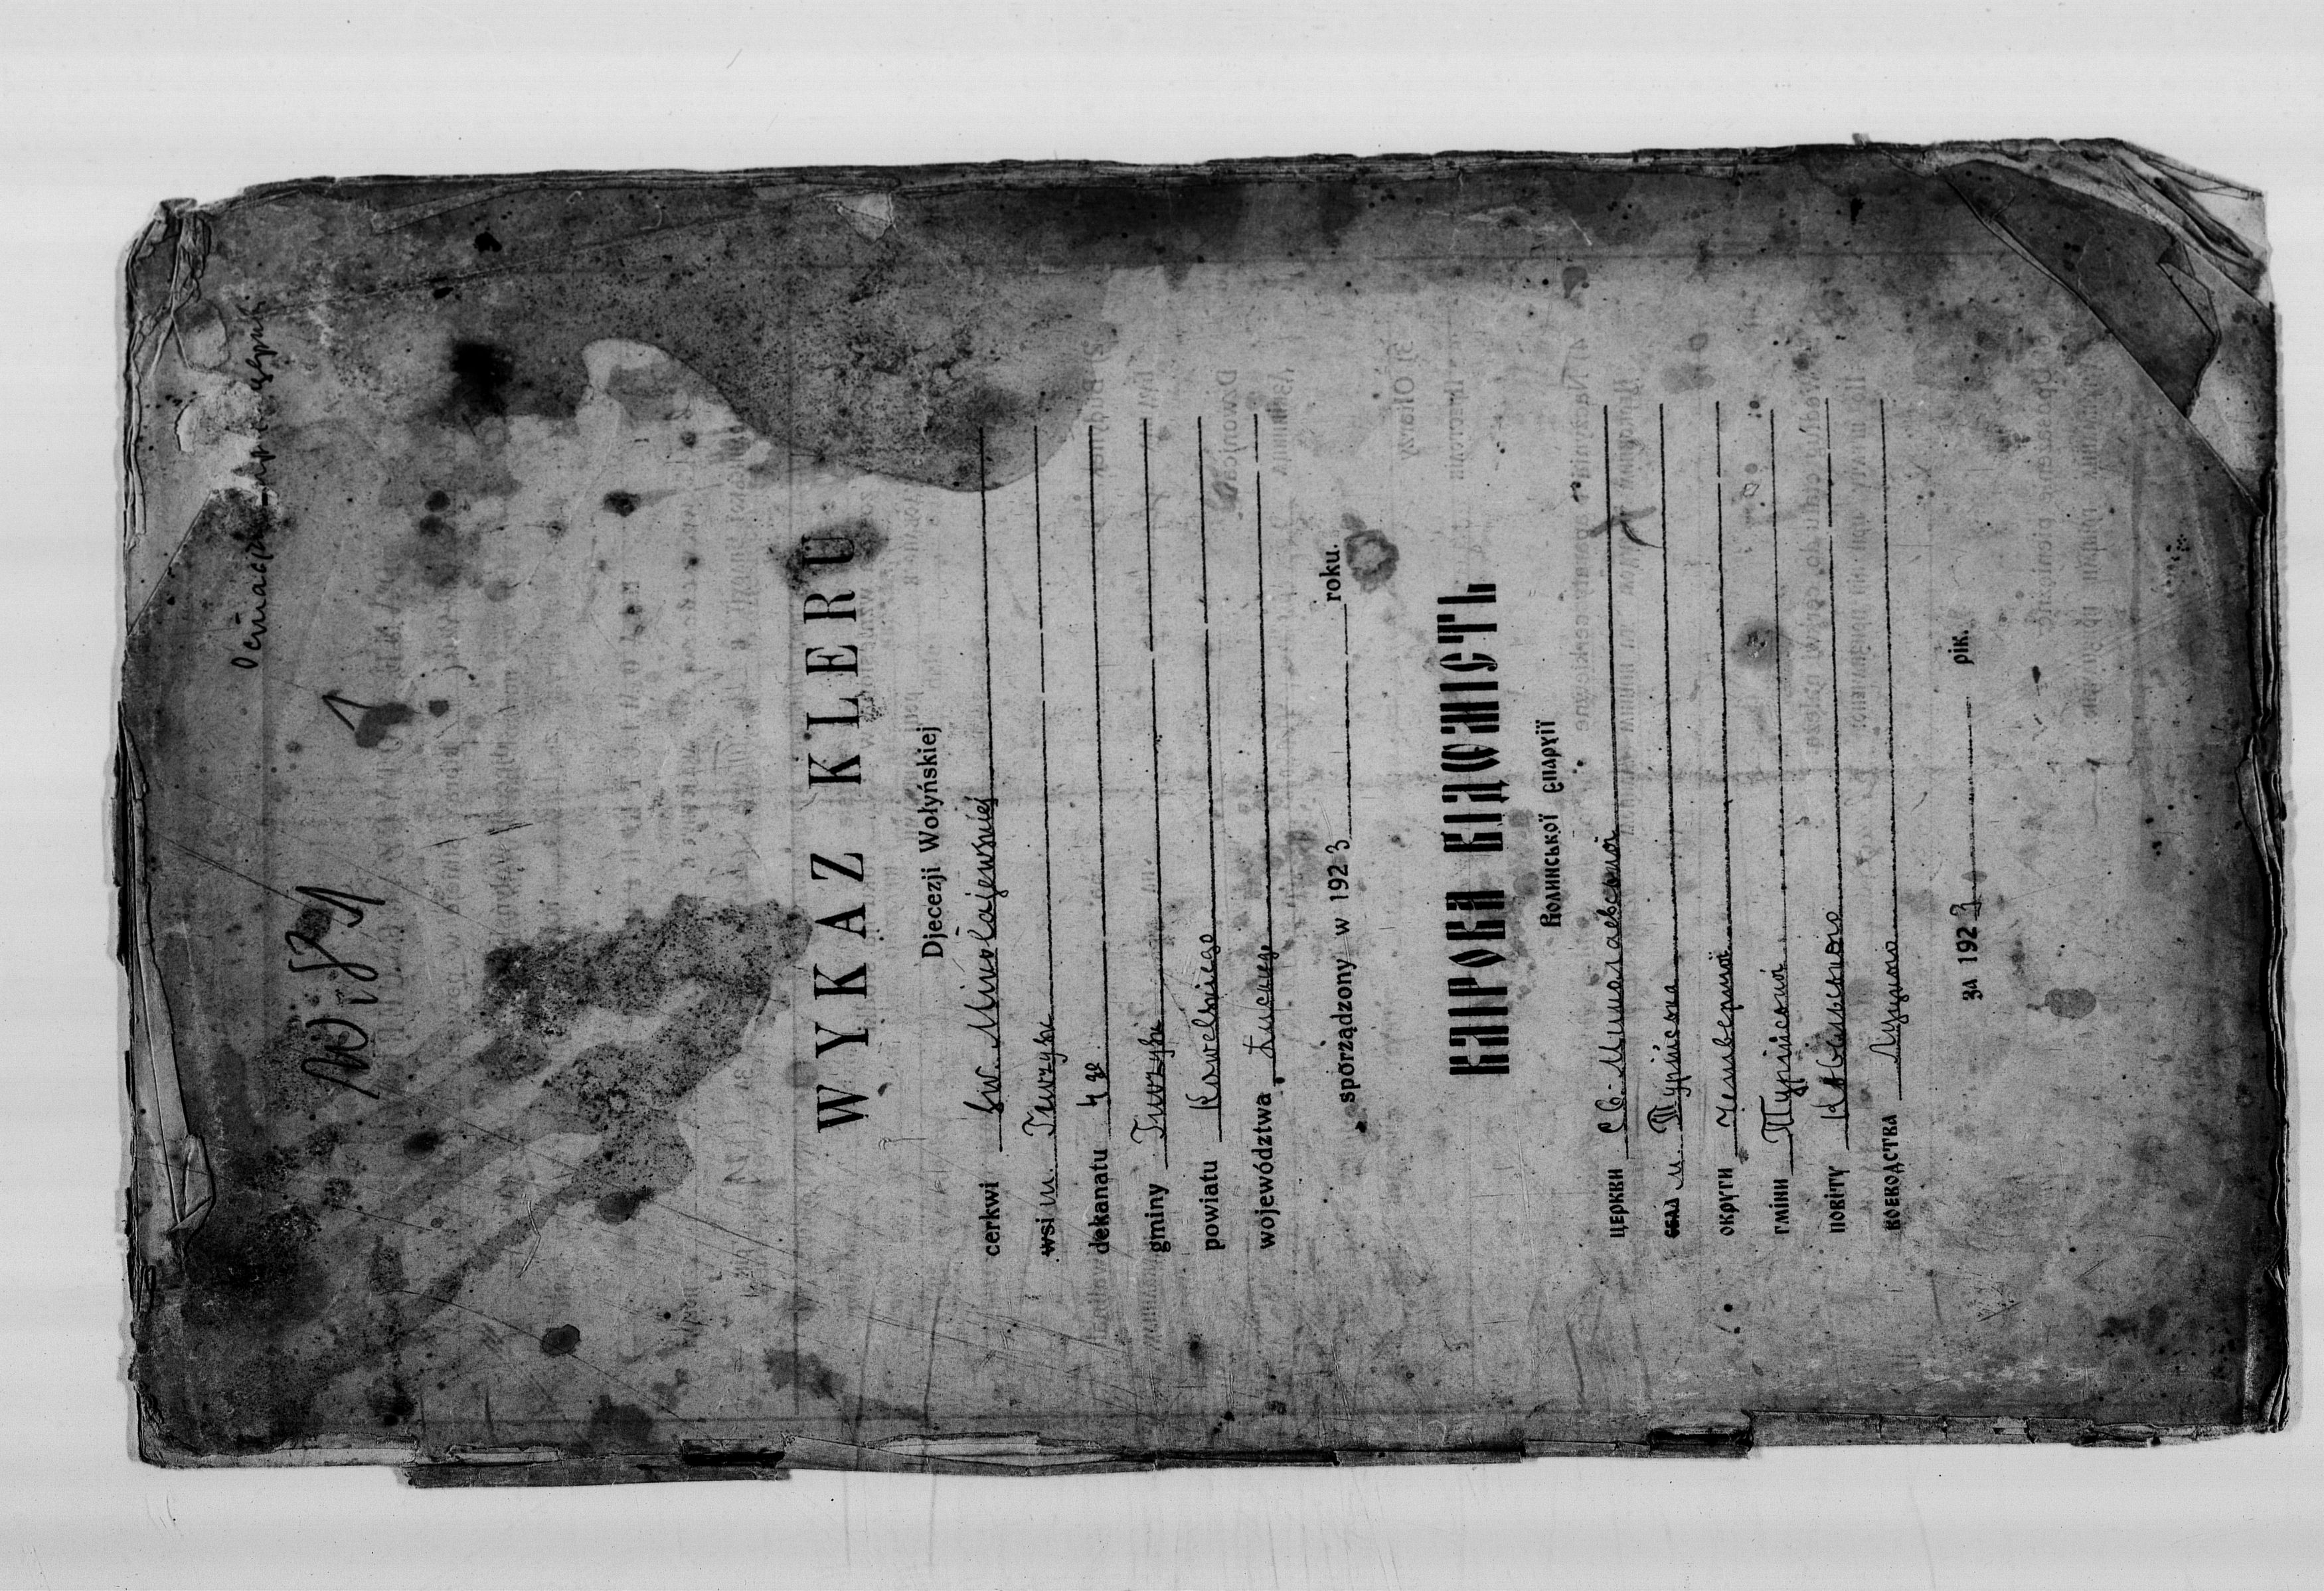 WYKAZ KLERU
Djecezji Wołyńskiej
cerkwi Św. Mikołajewskiej
wsi m. Turzysk
dekanatu 4go
gminy Turzysk
powiatu Kowelskiego
województwa
sporządzony w 1923 roku.
КЛІРОВА ВІДОМІСТЬ
Волинської Єпархії
церкви Св. Миколаевської
села м. Турійська
округи
гміни Турійської
повіту Ковельського
воеводства Луцького
за 1923 рік.